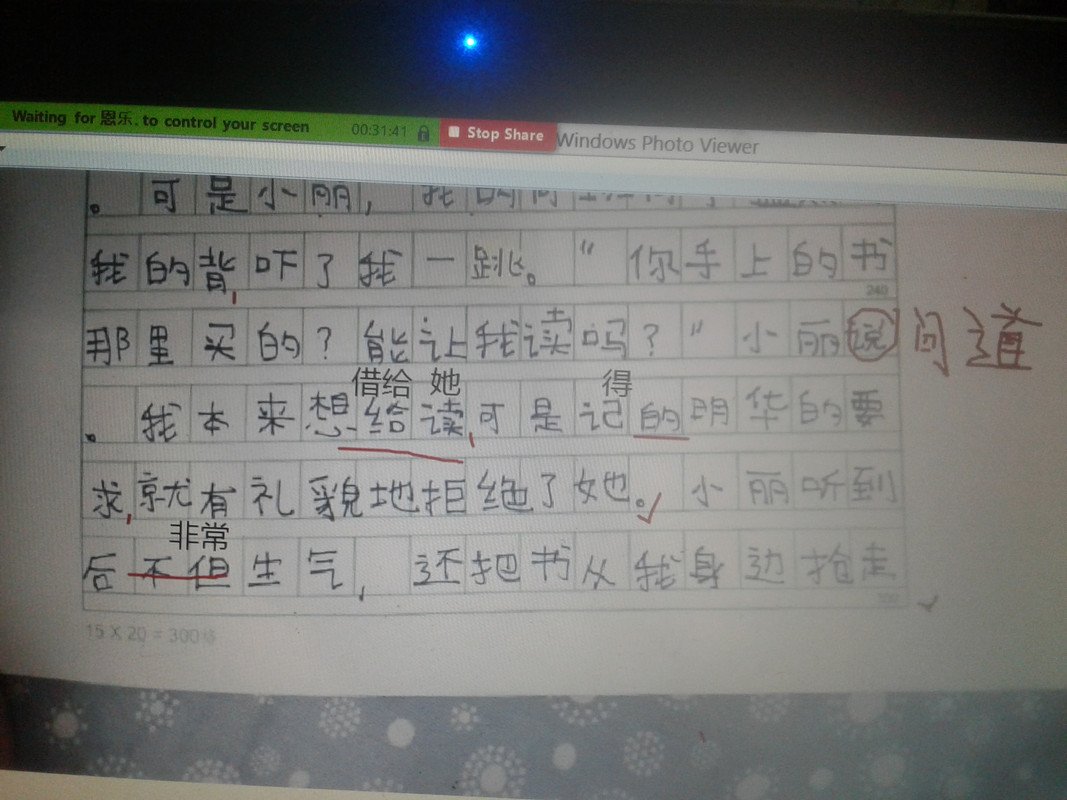 Waiting for 恩乐. to control your screen 00:31:41 Stop Share
Windows Photo Viewer
。可是小丽，我的
我的背，吓了我一跳。“你手上的书
240
那里买的？能让我读吗？”小丽说 问道
借给 她 得
。我本来想给读，可是记的明华的要
求，就有礼貌地拒绝了她。小丽听到
非常
后不但生气，还把书从我身边抢走
300
15 X 20 = 300格